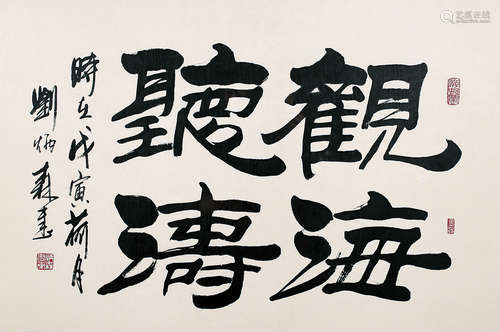 觀海
聽濤
時在戊寅荷月
劉炳森書